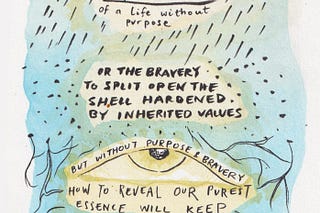 of a life without
purpose
OR THE BRAVERY
TO SPLIT OPEN THE
SHELL HARDENED
BY INHERITED VALUES
BUT WITHOUT PURPOSE & BRAVERY
HOW TO REVEAL OUR PUREST
ESSENCE WILL KEEP